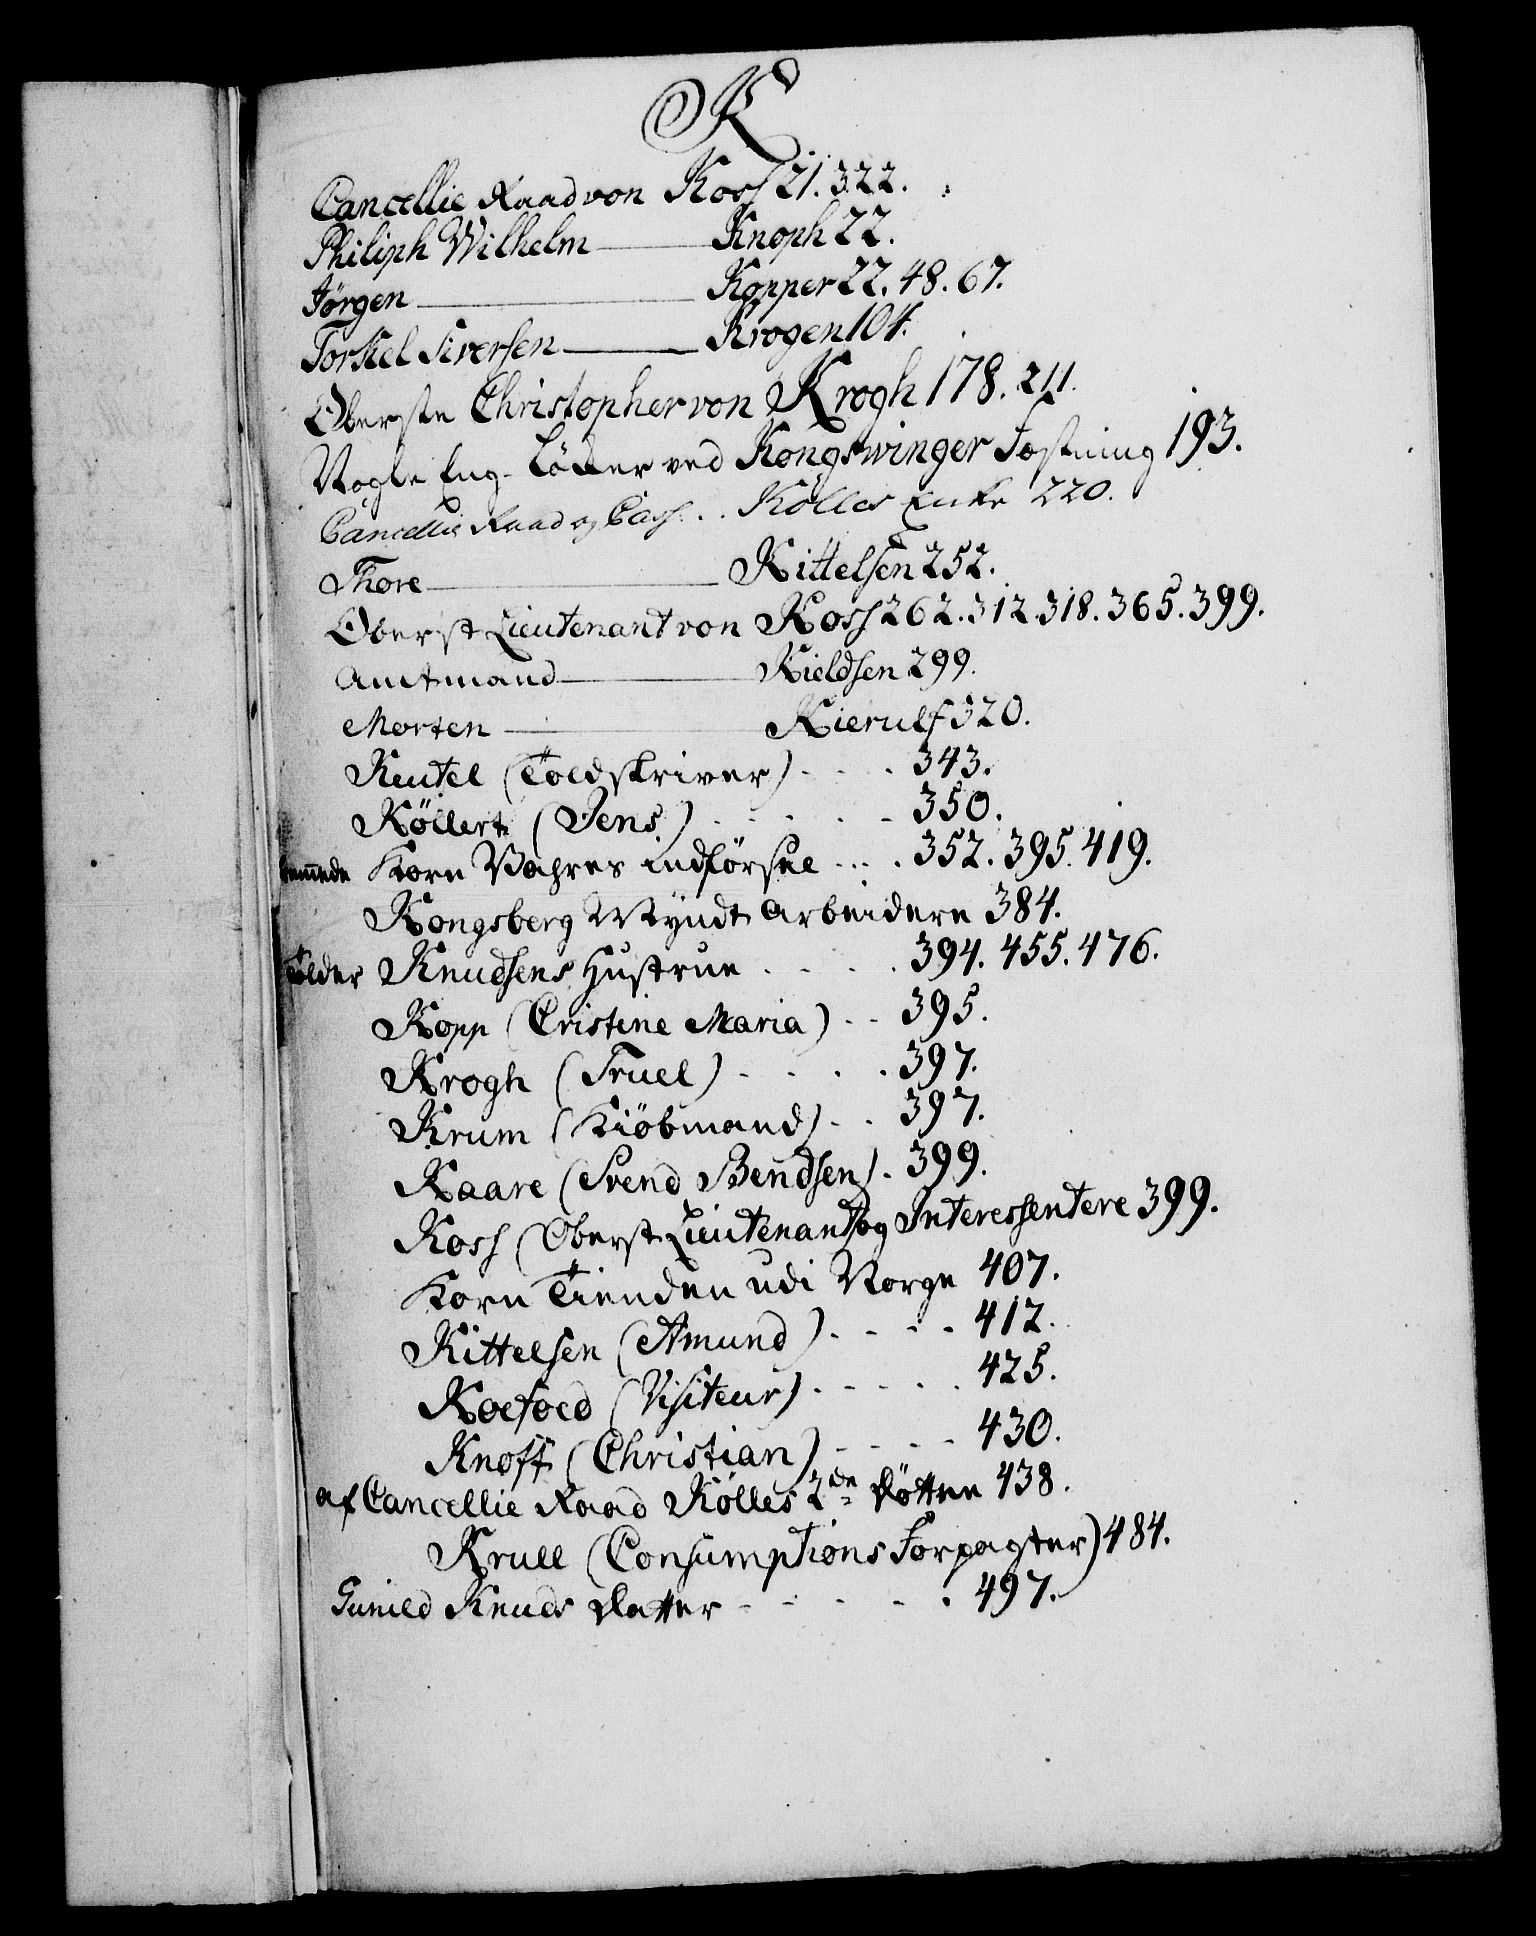 K
Cancellie Raad von Koss 21. 322.
Philiph Wilhelm Knoph 22.
Jörgen Kopper 22. 48. 67.
Torkel Siversen Krogen 104.
Oberste Christopher von Krogh 178. 211.
Nogle Eng-Löcker ved Kongswinger Fæstning 193.
Cancellie Raad og Cass. . . Kölles Enke 220.
Thore Kittelsen 252.
Oberst Lieutenant von Koss 262. 312. 318. 365. 399.
Amtmand Kieldsen 299.
Morten Kierulf 320.
Keutel (Toldskriver) . . . . 343.
Köllert (Jens) . . . . . 350.
fremmede Korn Vahres indförsel . . . . 352. 395. 419.
Kongsberg Myndt Arbeidere 384.
Tolder Knudsens Hustrue . . . . 394. 455. 476.
Kopp (Cristine Maria) . . 395.
Krogh (Truel) . . . . 397.
Krum (Kiöbmand) . . 397.
Kaare (Svend Bendsen) . 399.
Koss (Oberst Lieutenant) og Interessentere 399.
Korn Tienden udi Norge 407.
Kittelsen (Amund) . . . . 412.
Koefoed (Visiteur) . . . . . 425.
Knoff (Christian) . . . . 430.
af Cancellie Raad Kölles 2de Döttre 438.
Krull (Consumptions Forpagter) 484.
Gunild Knuds Datter . . . . . 497.